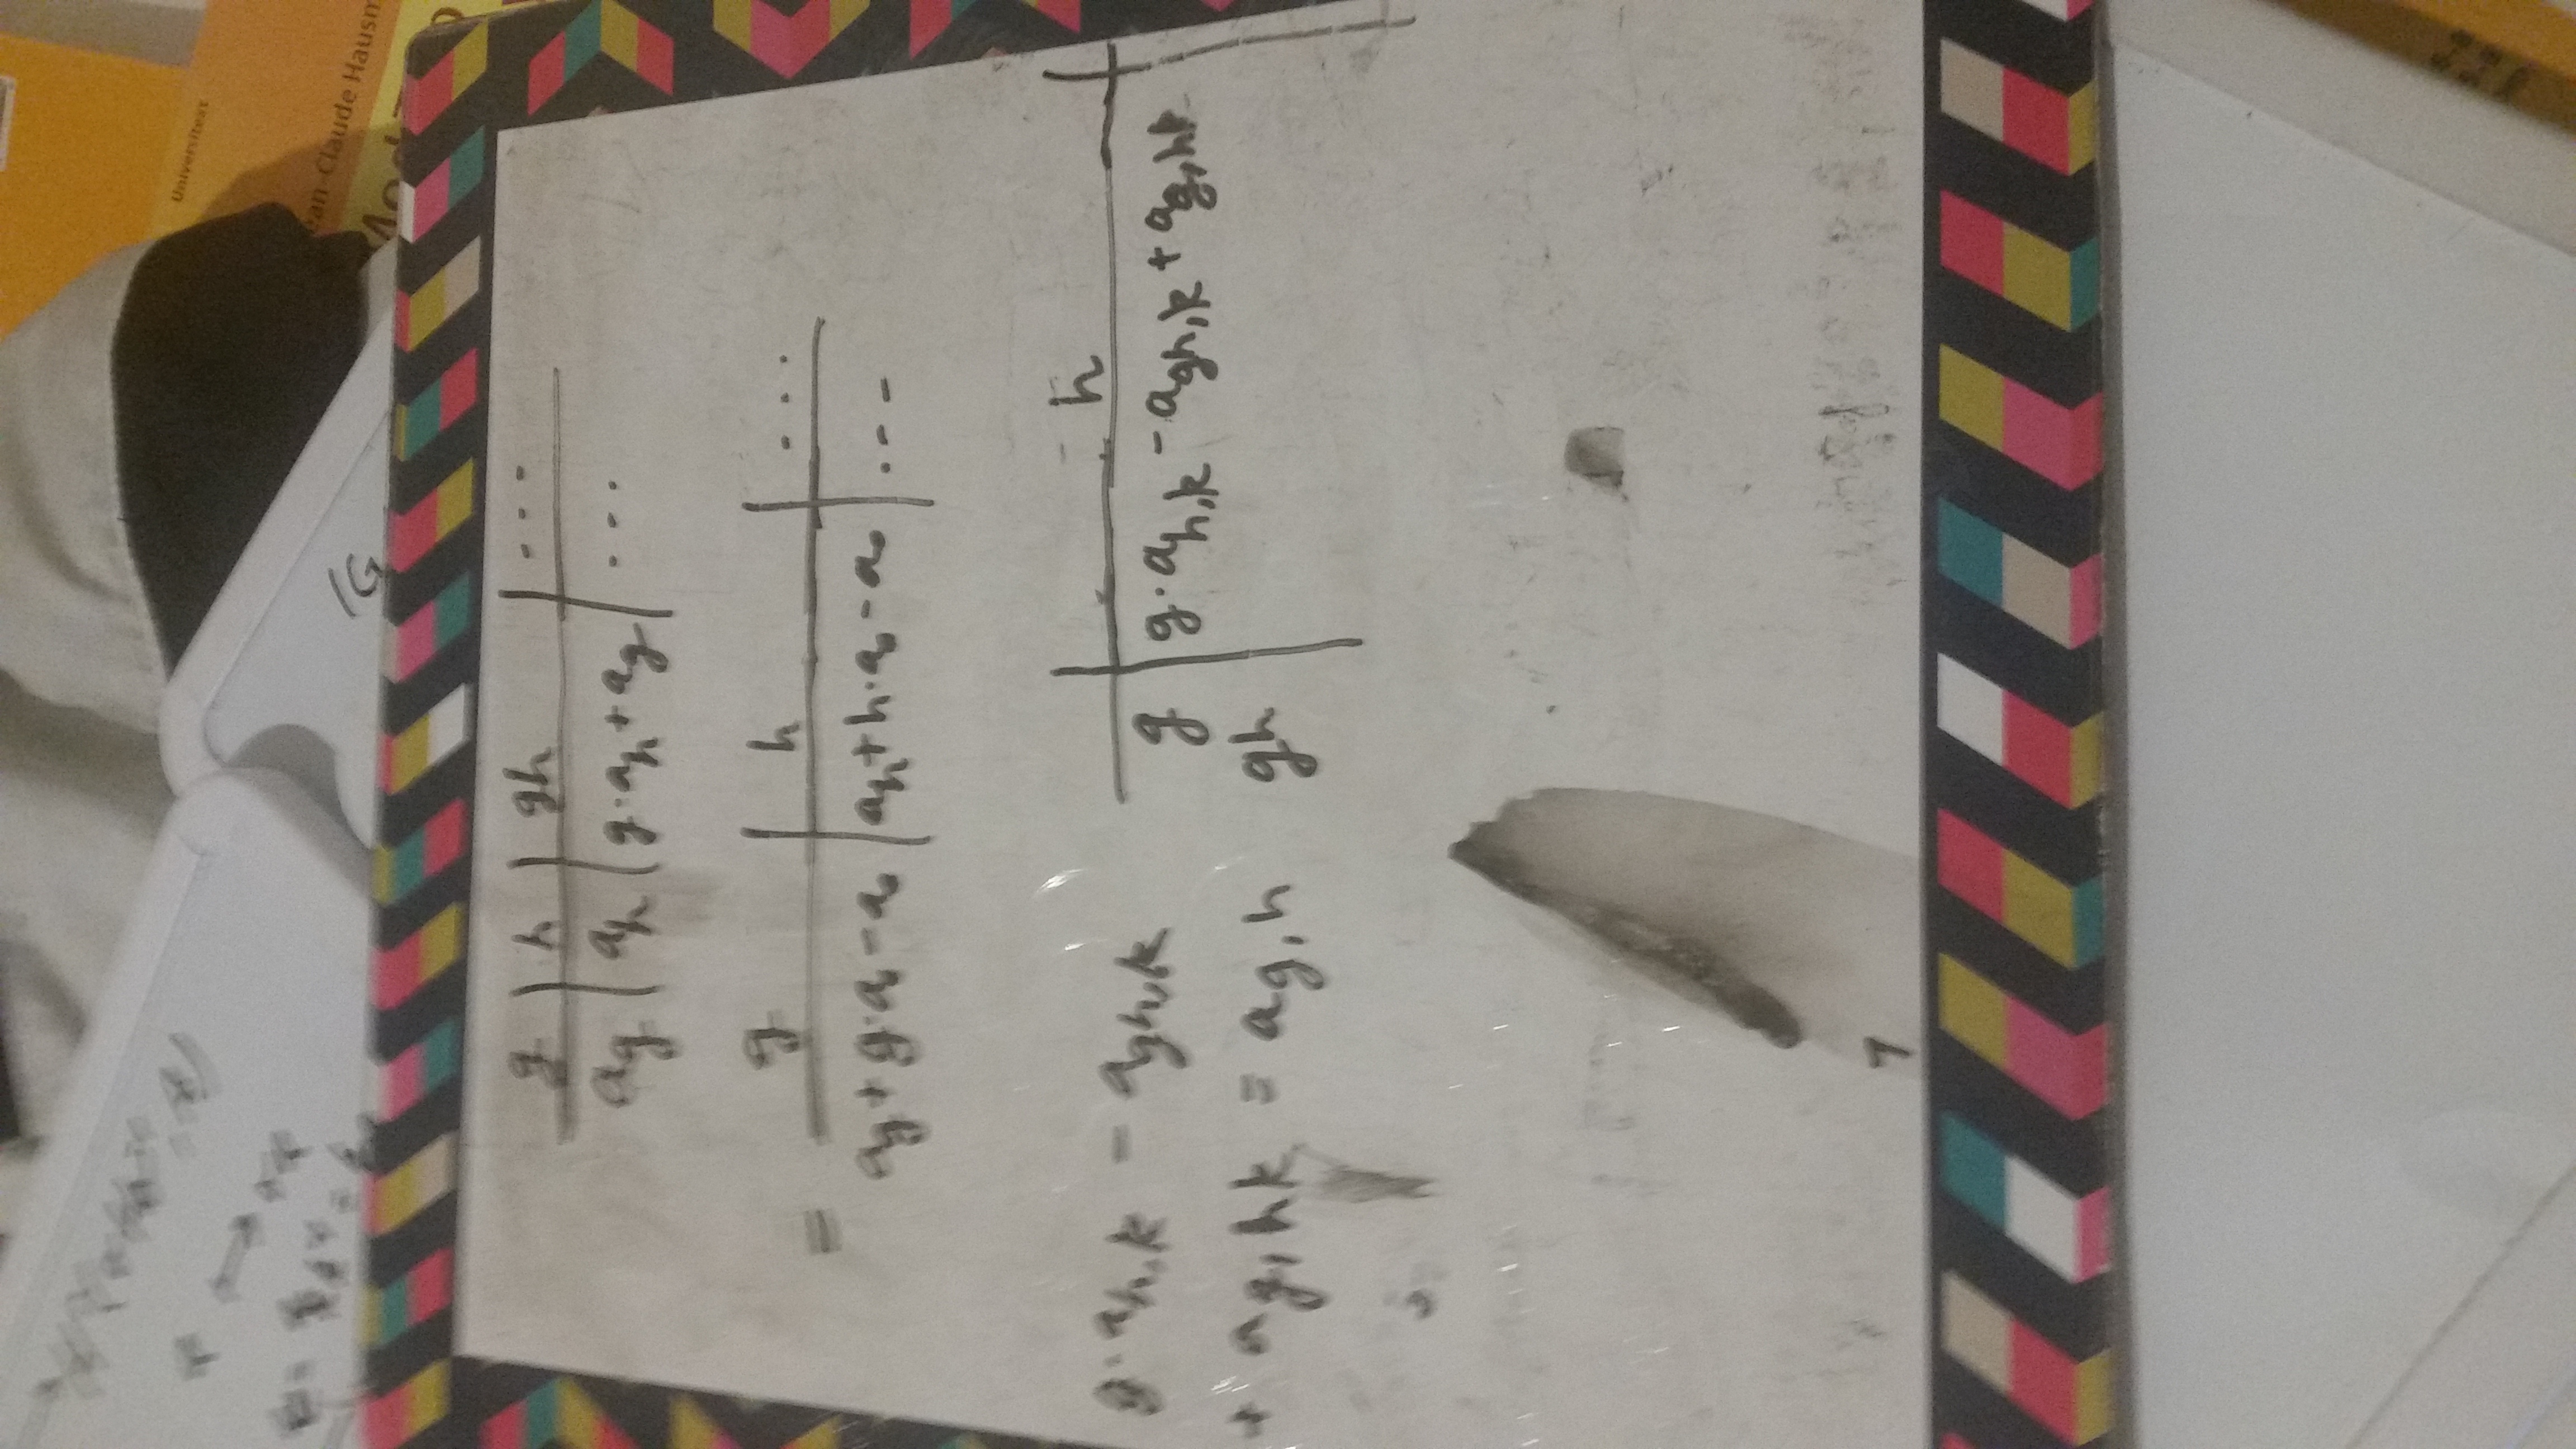 Universitext
Jean-Claude Hausm
Mod
g | h | gh | ...
a_g | a_h | g·a_h + a_g | ...
= g | h | ...
a_g + g·a_0 - a_0 | a_h + h·a_0 - a_0 | ...
g·a_{h,k} - a_{gh,k}
+ a_{g,hk} = a_{g,h}
h
g | g·a_{h,k} - a_{gh,k} + a_{g,hk}
gh